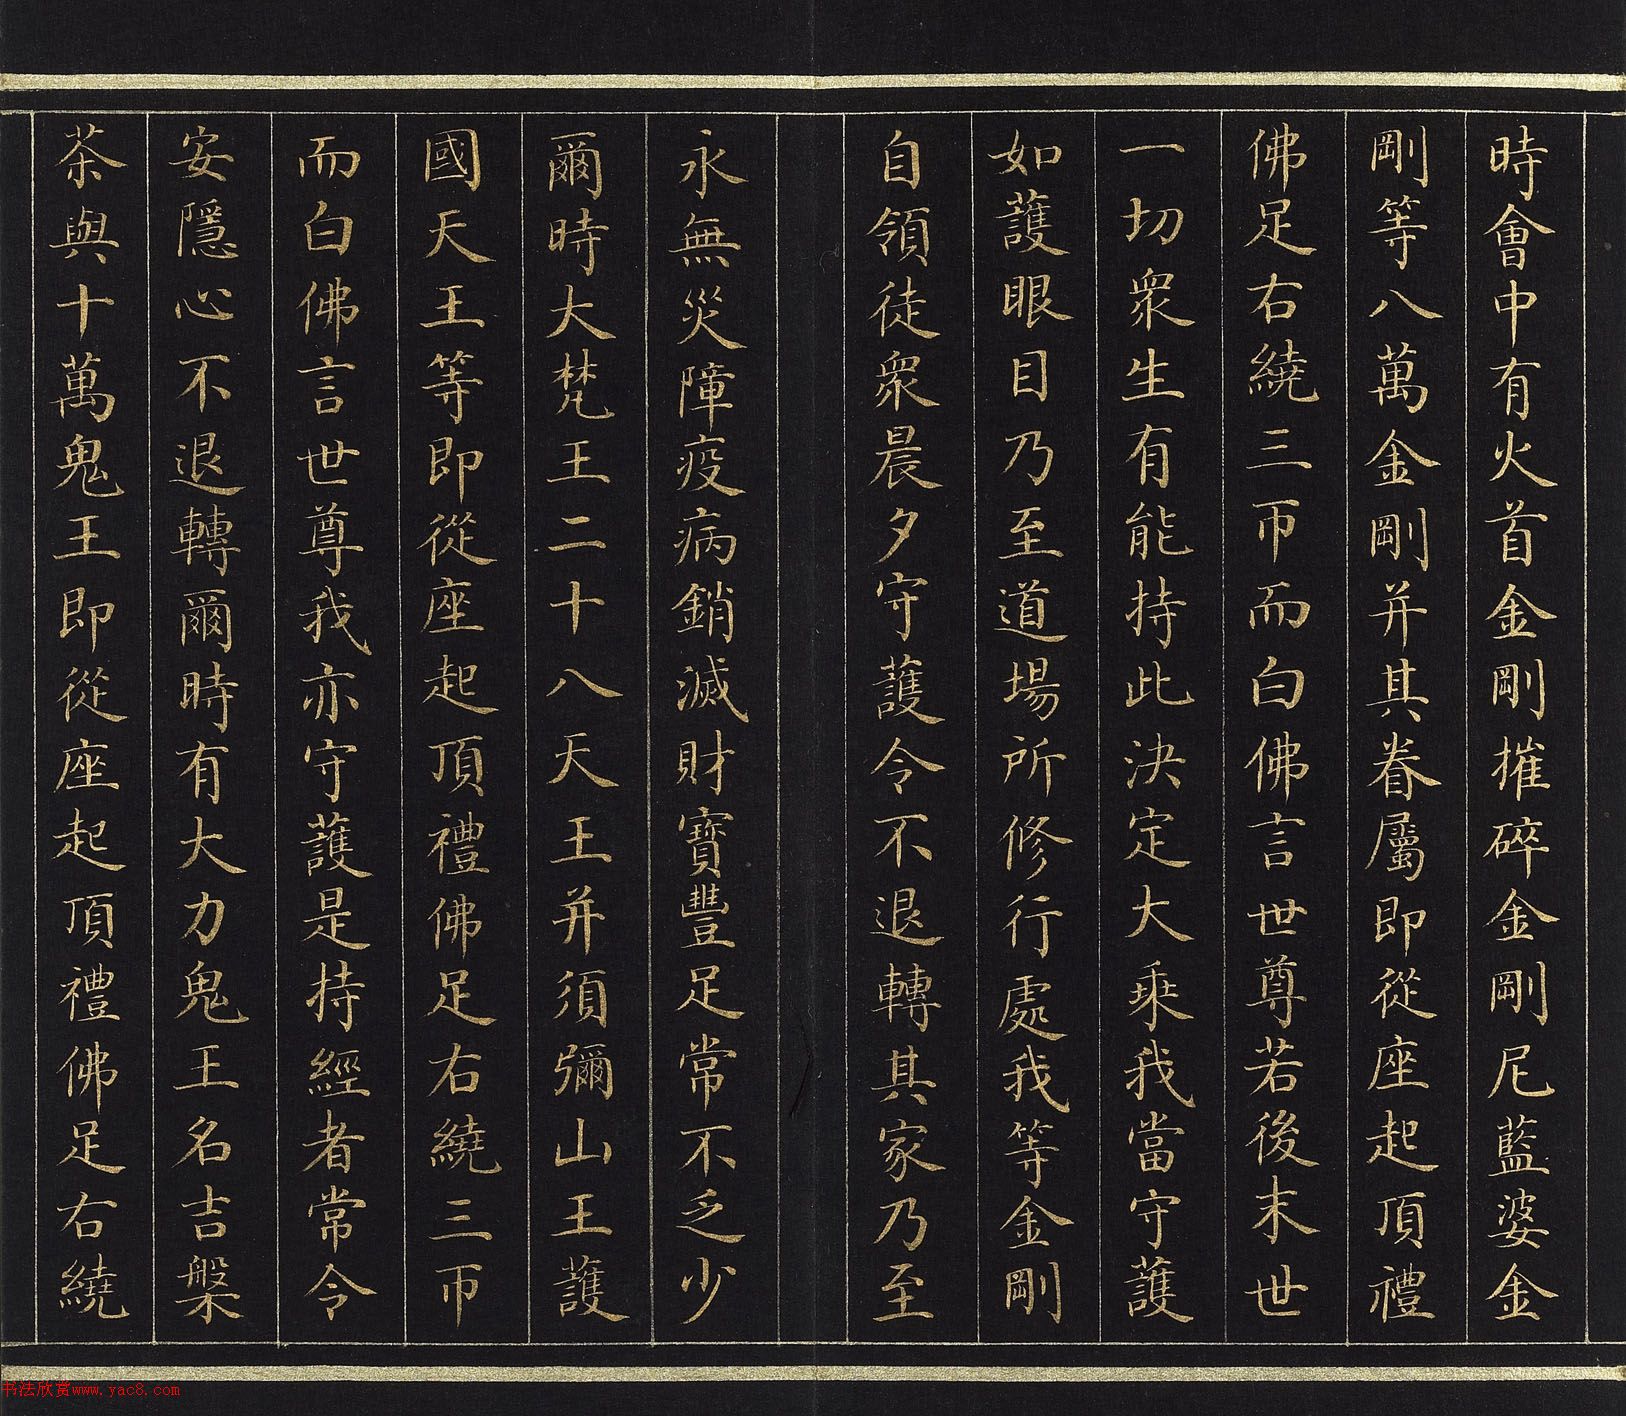 時會中有火首金剛摧碎金剛尼藍婆金
剛等八萬金剛并其眷屬即從座起頂禮
佛足右繞三帀而白佛言世尊若後末世
一切眾生有能持此決定大乘我當守護
如護眼目乃至道場所修行處我等金剛
自領徒眾晨夕守護令不退轉其家乃至
永無災障疫病銷滅財寶豐足常不乏少
爾時大梵王二十八天王并須彌山王護
國天王等即從座起頂禮佛足右繞三帀
而白佛言世尊我亦守護是持經者常令
安隱心不退轉爾時有大力鬼王名吉槃
茶與十萬鬼王即從座起頂禮佛足右繞
书法欣赏www.yac8.com